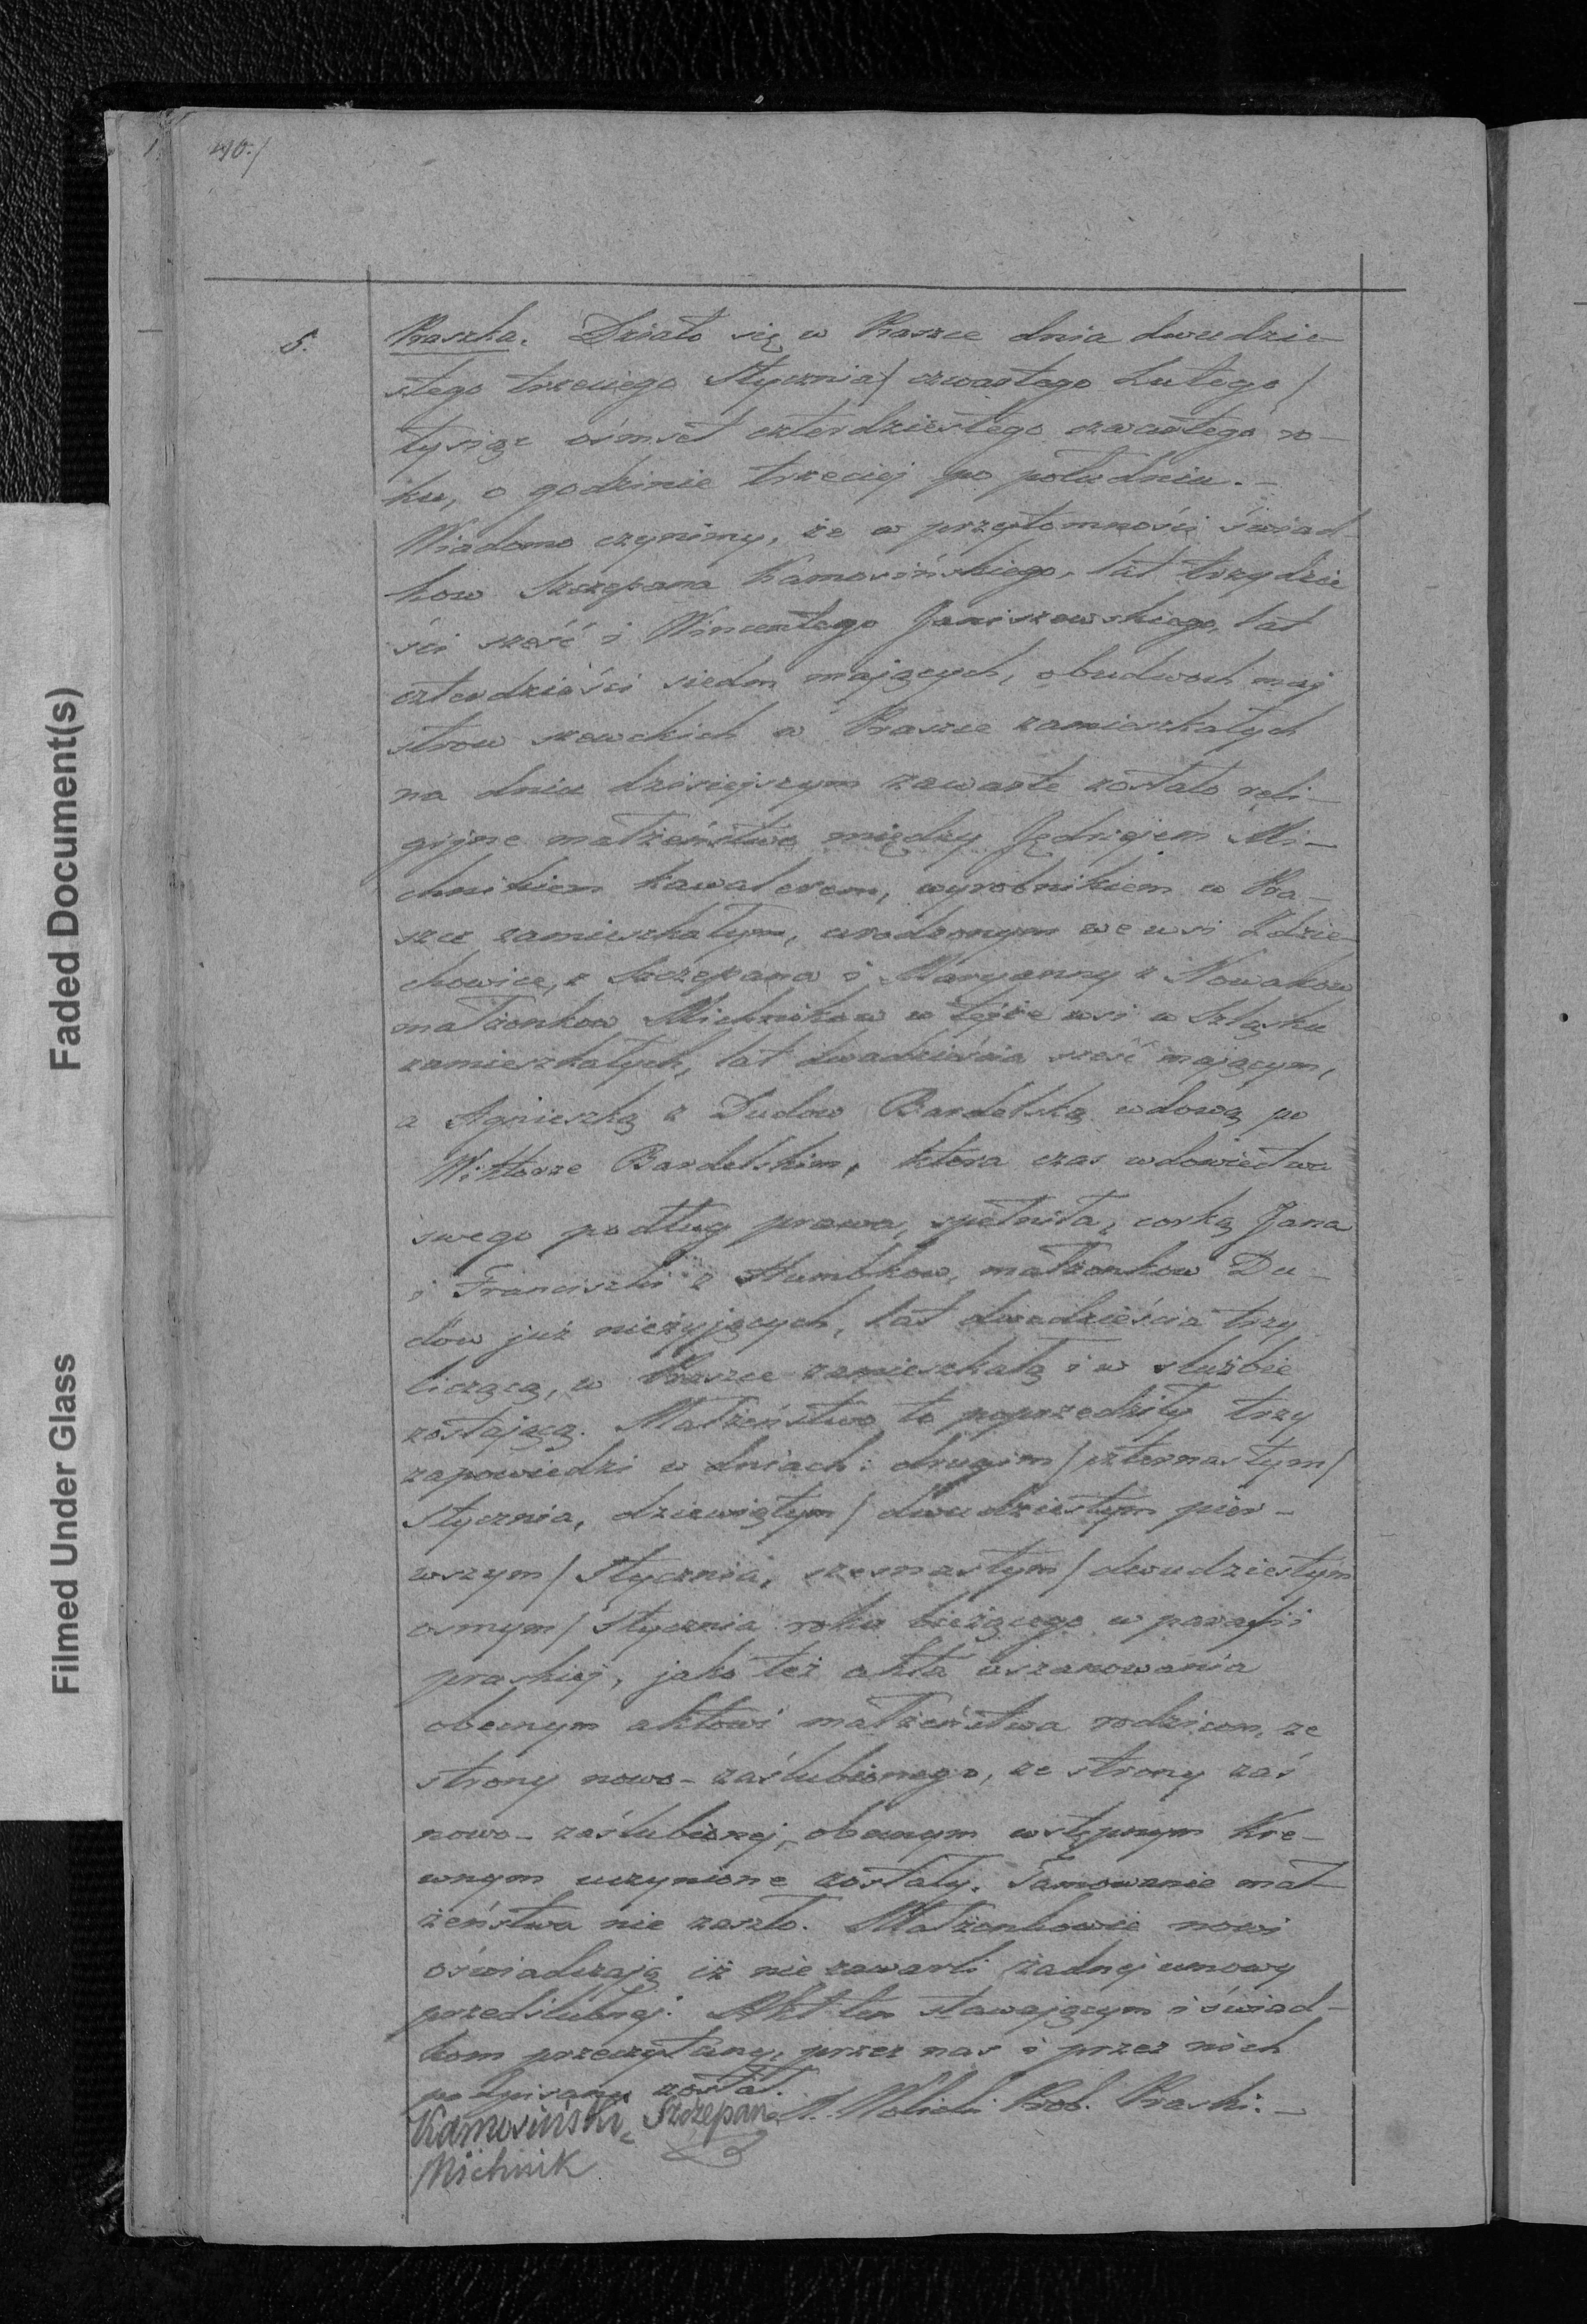 Faded Document(s)
Filmed Under Glass
5.
Praszka. Działo się w Praszce dnia dwudzie-
stego trzeciego Stycznia/ czwartego Lutego/
tysiąc ośmset czterdziestego czwartego ro-
ku, o godzinie trzeciej po południu.-
Wiadomo czynimy, że w przytomności świad-
kow Szczepana Kamosińskiego, lat trzydzie
ści sześć i Wincentego Janiszewskiego, lat
czterdzieści siedm mających, obudwoch maj
strow szewckich w Praszce zamieszkałych
na dniu dzisiejszym zawarte zostało reli-
gijne małżeństwo między Jędrzejem Mi-
chnikiem kawalerem, wyrobnikiem w Pra-
szce zamieszkałym, urodzonym we wsi Zdzie-
chowice, z Szczepana i Maryanny z Nowakow
małżonkow Michnikow w tejże wsi w Szlązku
zamieszkałych, lat dwadzieścia sześć mającym,
a Agnieszką z Dudow Bardelską wdową po
Wiktorze Bardelskim, ktora czas wdowiectwa
swego podług prawa, spełniła, corką Jana
i Franciszki z Humbkow, małżonkow Du-
dow już nieżyjących, lat dwadzieścia trzy
liczącą, w Praszce zamieszkałą i w służbie
zostającą. Małżeństwo to poprzedziły trzy
zapowiedzi w dniach: drugim/ czternastym/
Stycznia, dziewiątym/ dwudziestym pier-
wszym/ Stycznia, szesnastym/ dwudziestym
osmym/ Stycznia roku bieżącego w parafii
praskiej, jako też akta uszanowania
obecnym aktowi małżeństwa rodzicom, ze
strony nowo-zaślubionego, ze strony zaś
nowo-zaślubionej, obecnym wstępnym kre-
wnym uczynione zostały. Tamowanie mał-
żeństwa nie zaszło. Małżonkowie nowi
oświadczają iż nie zawarli żadnej umowy
przedślubnej. Akt ten stawającym i świad-
kom przeczytany, przez nas i przez nich
podpisany został.
Kamosiński Szczepan Prob. Praski.-
Michnik